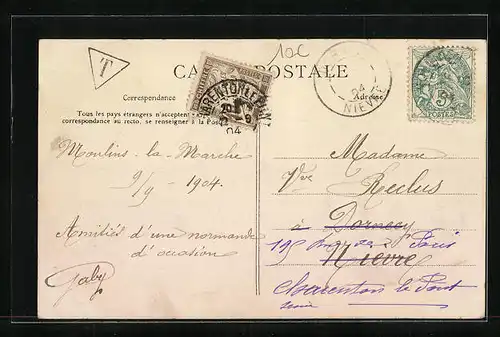 T
10c
CARTE POSTALE
Correspondance
Adresse
Tous les pays étrangers n'acceptent
correspondance au recto, se renseigner à la Poste
CHARENTON LE PONT
04
04
NIEVRE
5c
POSTES
Moulins-la-Marche
9/9 - 1904.
Amitiés d'une normande
d'occasion
Gaby
Madame
Vve Reclus
à Dornecy
Nièvre
195 de Paris
Charenton le Pont
Seine